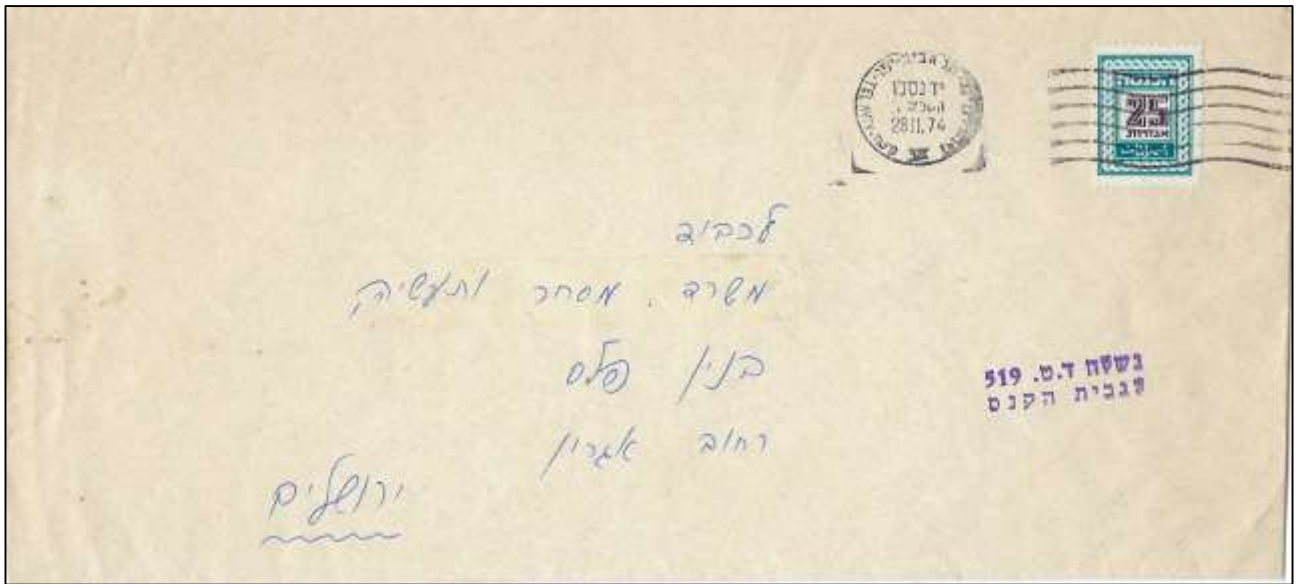 28.11.74
הכנסה
25
אגורות
לכבוד
משרד. מסחר ותעשיה
בנין פלס
רחוב אגרון
ירושלים
נשלח ד.ט. 519
לגבית הקנס